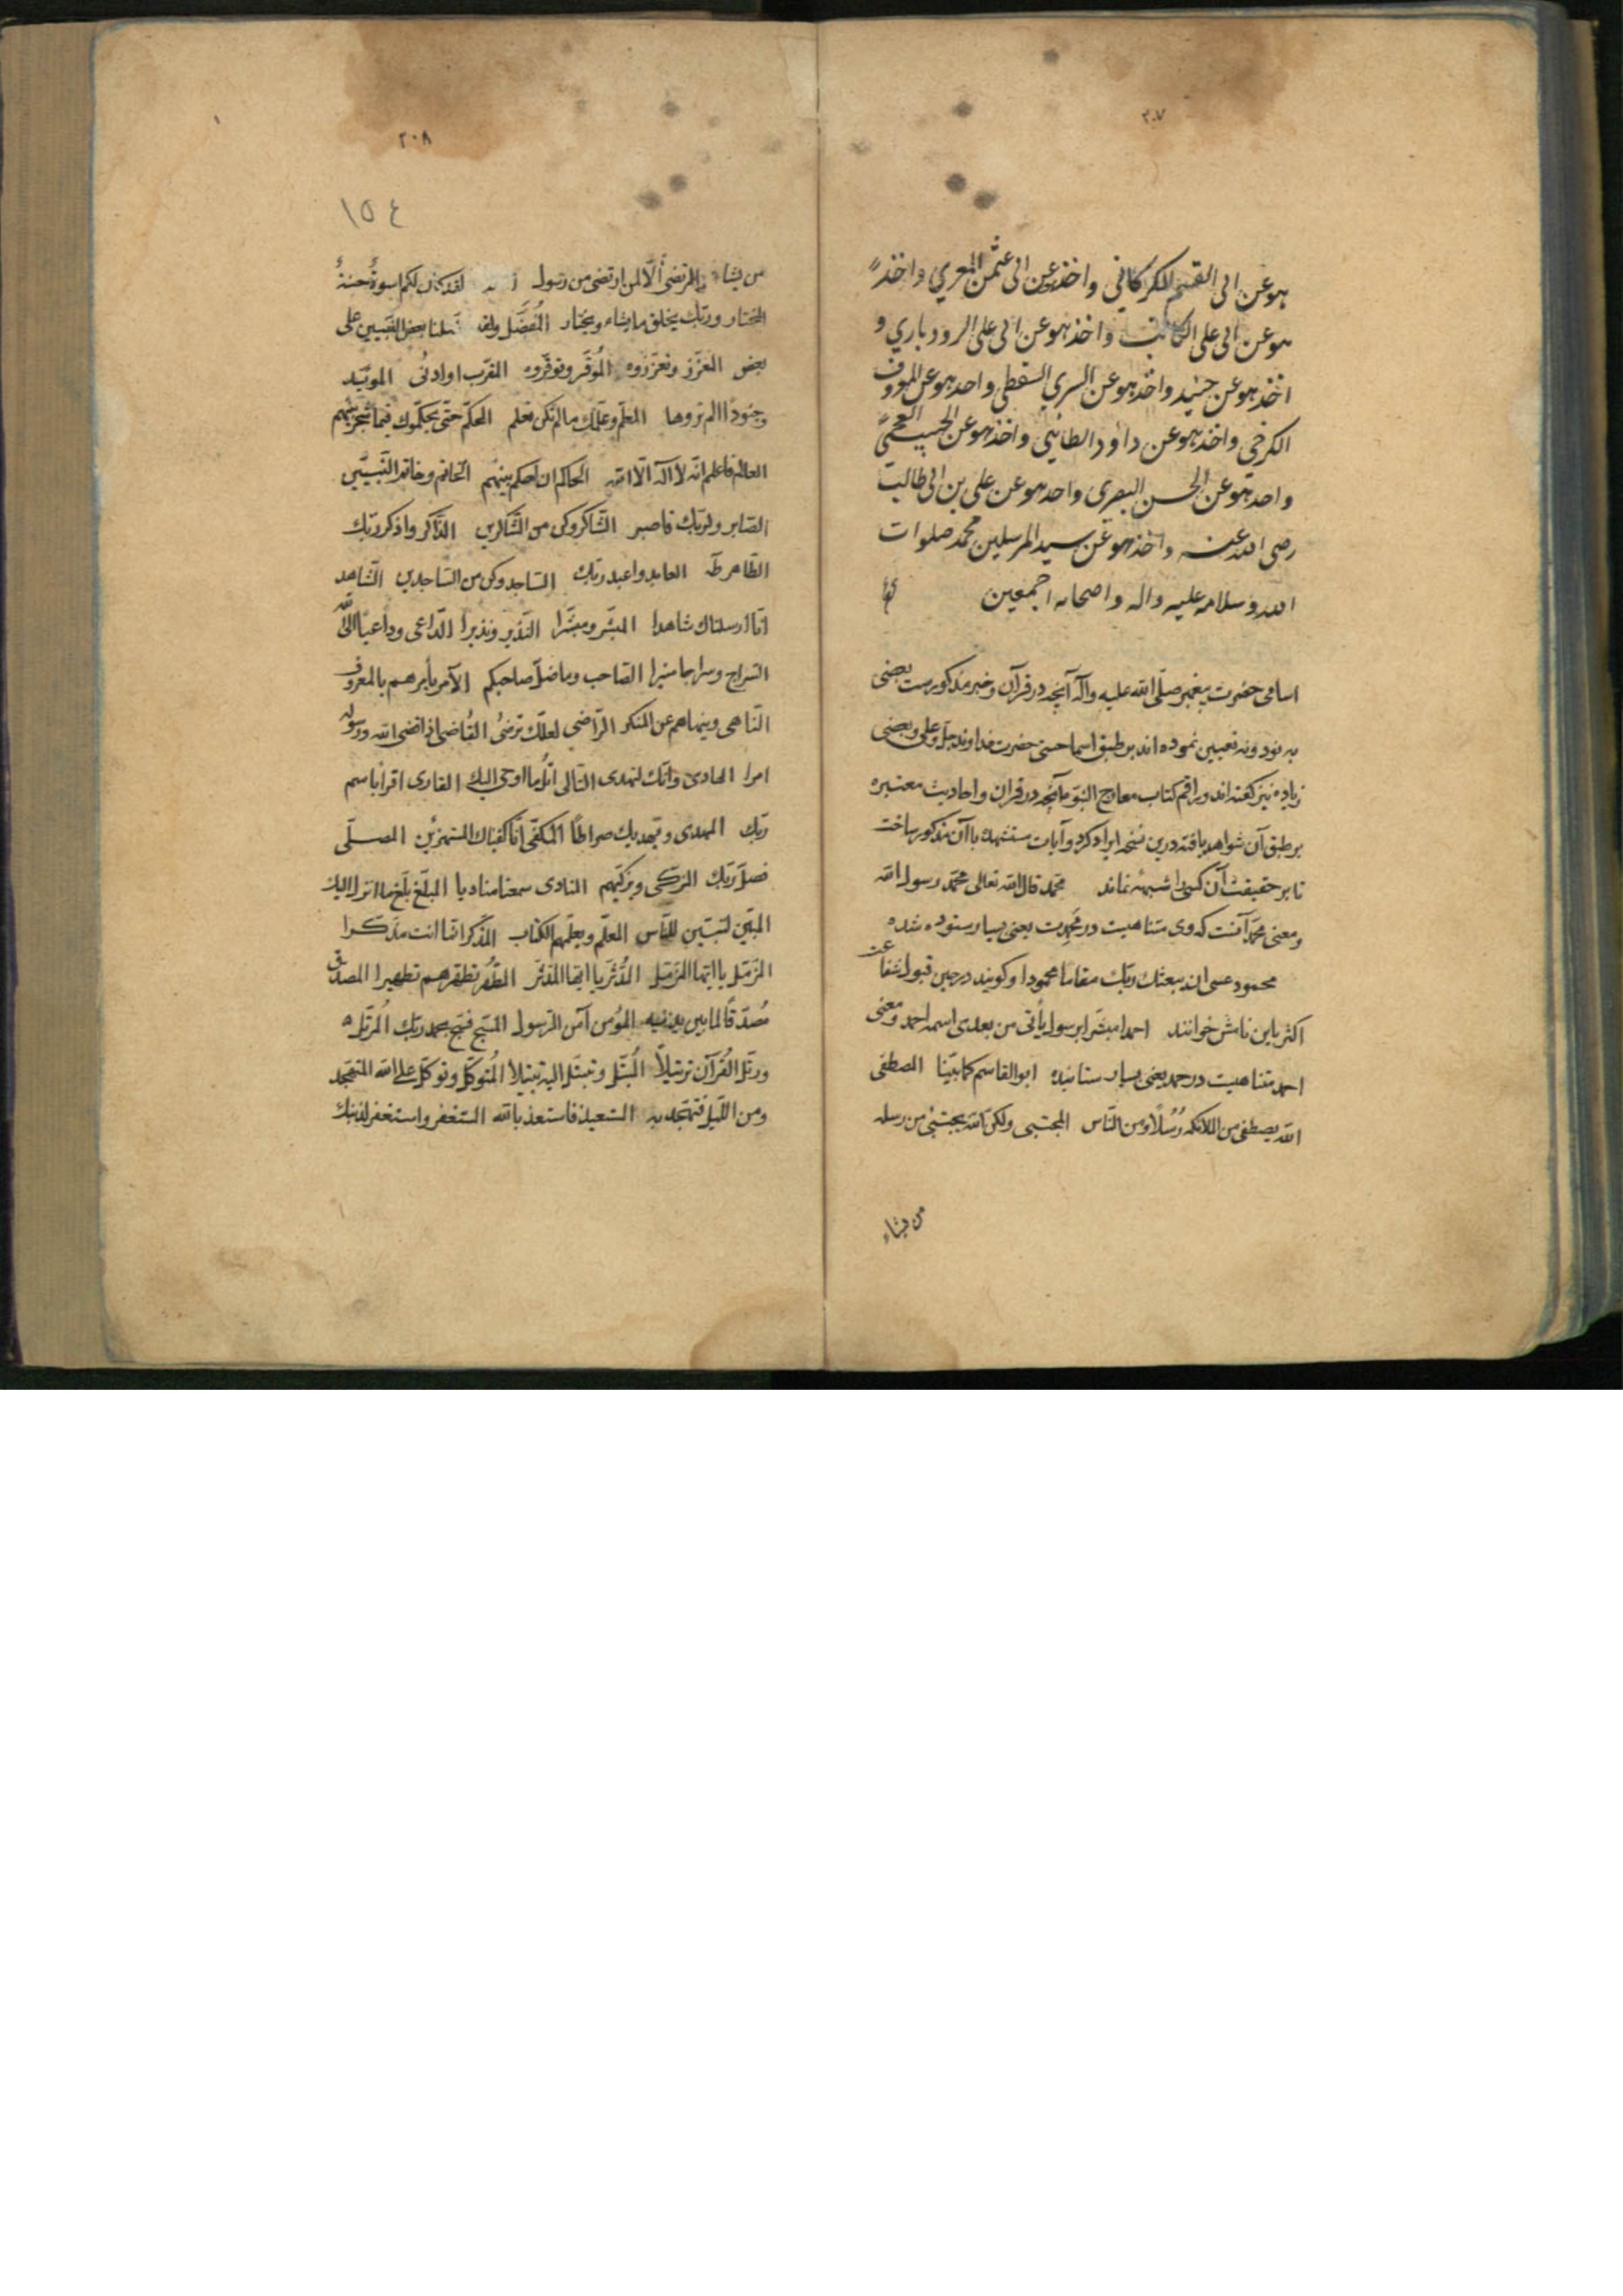 ٢٠٧
هو عن ابی القسم الكركاني واخذ هو عن ابی عثمن المغربي واخذ
هو عن ابی علی الكاتب واخذ هو عن ابی علی الرودباري و
اخذ هو عن جنيد واخذ هو عن السري السقطي واحد هو عن المعروف
الكرخي واخذ هو عن داود الطائي واخذ هو عن الحبيب العجمي
واحد هو عن الحسن البصری واحد هو عن علی بن ابی طالب
رضی الله عنه واخذ هو عن سيد المرسلين محمد صلوات
الله وسلامه عليه واله واصحابه اجمعين
اسامی حضرت پیغمبر صلّی الله علیه وآله آنچه در قرآن و خبر مذکورست بعضی
به نود و نه تعیین نموده اند بر طبق اسما حسنی حضرت خداوند جلّ وعلی وبعضی
زیاده نیز گفته اند و راقم کتاب معارج النبوّه آنچه در قران و احادیث معتبره
بر طبق آن شواهد یافته درین نسخه ایراد کرد و آیات مستشهد با آن مذکور ساخت
تا بر حقیقت آن کسی را شبهه نماند محمّد قال الله تعالی محمّد رسول الله
ومعنی محمّد آنست که وی متناهیست در محمدت یعنی بسیار ستوده شده
محمود عسی ان یبعثك ربّك مقاما محمودا و کویند در حین قبول شفاعت
اکثر باین نامش خوانند احمد مبشّرا برسول یأتی من بعدی اسمه احمد ومعنی
احمد متناهیست در حمد یعنی بسیار ستاینده ابو القاسم کما بیّنا المصطفی
الله یصطفی من الملائکه رُسُلاً ومن النّاس المجتبی ولکنّ الله یجتبی من رسله
من یشاء
٢٠٨
١٥٤
من یشاء المرتضی الّا لمن ارتضی من رسول لقد کان لکم اسوةٌ حسنةٌ
المختار وربّك یخلق ما یشاء ویختار المُفَضَّل ولقد فضّلنا بعض النّبیین علی
بعض المعزّز وتعزّزوه المُوَقَّر وتوقّروه المقرّب او ادنی المویّد
وجنوداً لم تروها المعلّم وعلّمك ما لم تکن تعلم المحکّم حتّی یحکّموك فیما شجر بینهم
العالم فاعلم انّه لا اله الّا الله الحاکم ان احکم بینهم الخاتم وخاتم النّبیّین
الصّابر ولربّك فاصبر الشّاکر وکن من الشّاکرین الذّاکر واذکر ربّك
الطّاهر طه العابد واعبد ربّك السّاجد وکن من السّاجدین الشّاهد
انّا ارسلناك شاهدا المبشّر ومبشّرا النّذیر ونذیرا الدّاعی وداعیاً الی اللّه
السّراج وسراجا منیرا الصّاحب وما ضلّ صاحبکم الآمر یأمرهم بالمعروف
النّاهی وینهاهم عن المنکر الرّاضی لعلّك ترضیٰ القُاضی اذا قضی الله ورسوله
امرا الهادی وانّك لتهدی التّالی اتلُ ما اوحی الیك القاری اقرا باسم
ربّك المهدی ویهدیك صراطاً المکفّی انّا کفیناك المستهزئین المصلّی
فصلّ ربّك المزکّی ویزکّیهم المنادی سمعنا منادیا المبلّغ بلّغ ما انزل الیك
المبیّن لتبیّن للنّاس المعلّم ویعلّمهم الکتاب المذّکر انّما انت مذکّرا
المزّمّل یا ایّها المزّمّل المدّثّر یا ایّها المدّثّر المطهّر تطهّرهم تطهیرا المصدّق
مُصدّقًا لما بین یدیه المؤمن آمن الرّسول المسبّح فسبّح بحمد ربّك المُرتّل
ورتّل القُرآن ترتیلاً المُبتّل وتبتّل الیه تبتیلا المُتوکّل وتوکّل علی الله المتهجّد
ومن اللّیل فتهجّد به المستعیذ فاستعذ بالله المستغفر واستغفر لذنبك